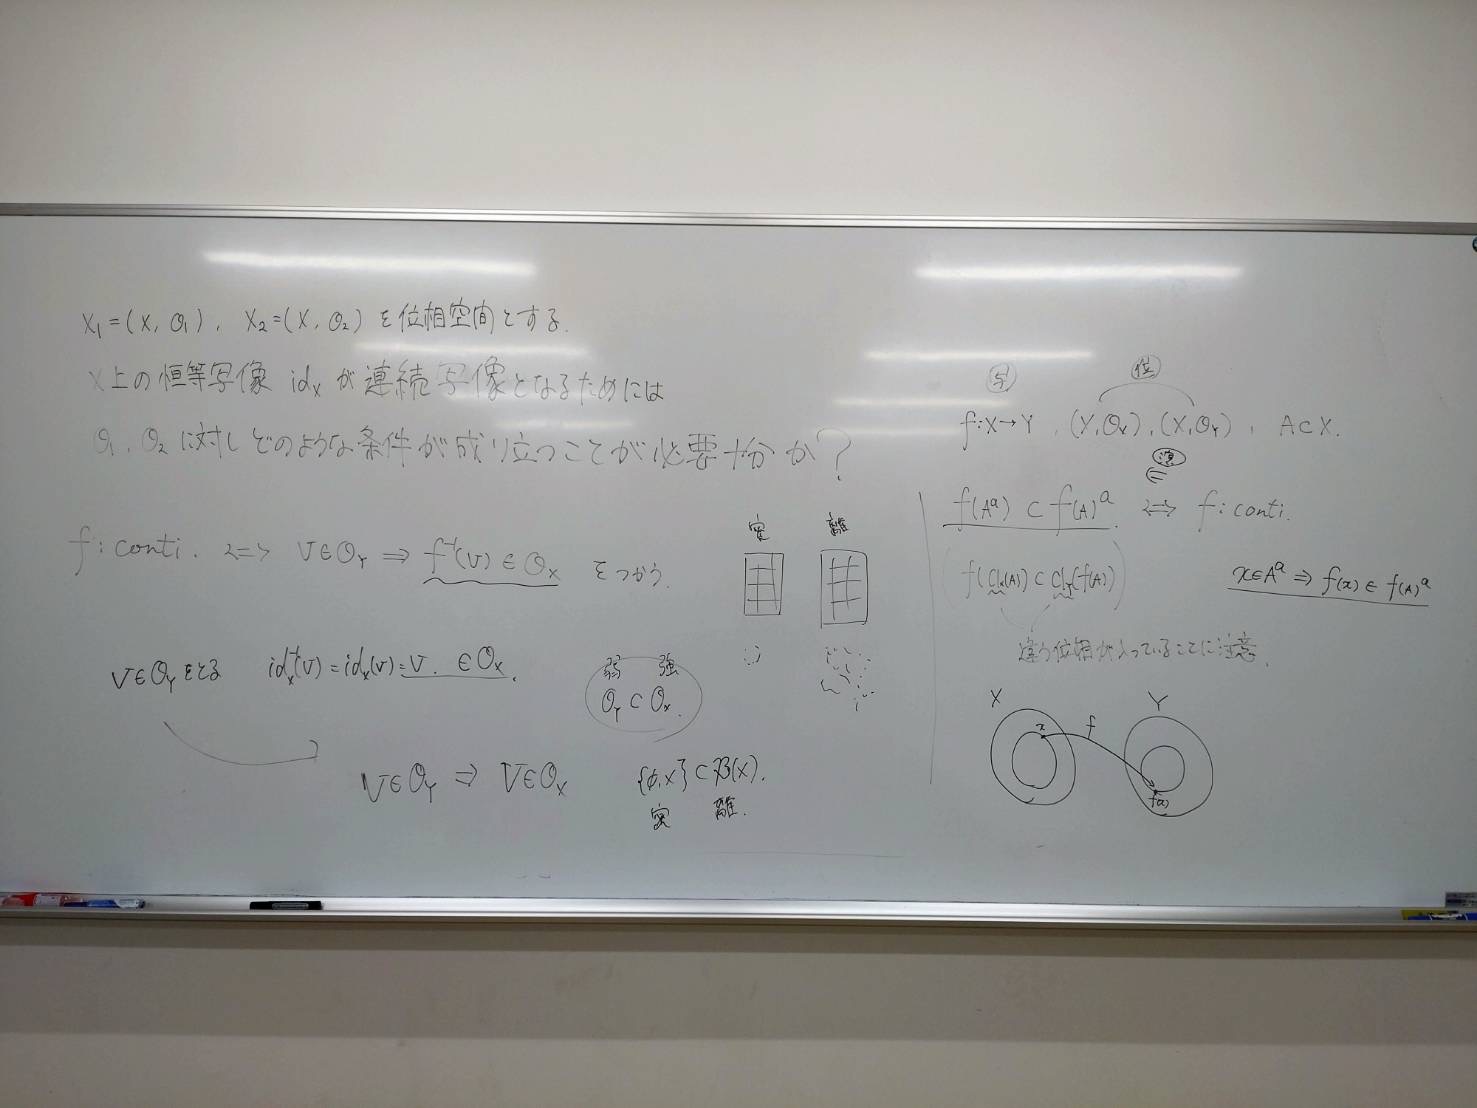 X₁=(X, O₁), X₂=(X, O₂) を位相空間とする.
X上の恒等写像 id_X が連続写像となるためには
O₁, O₂ に対しどのような条件が成り立つことが必要十分か?
f: conti. <=> V∈O_Y ⇒ f⁻¹(V)∈O_X をつかう.
V∈O_Yをとる id_X⁻¹(V)=id_X(V)=V. ∈O_X.
弱 強
O_Y⊂O_X.
V∈O_Y ⇒ V∈O_X
{φ,X}⊂𝔓(X).
密 離.
密 離
写 位
f:X→Y, (Y,O_X), (X,O_Y), A⊂X.
f(A^a)⊂f(A)^a. <=> f: conti.
(f(Cl_X(A))⊂Cl_Y(f(A)))
違う位相が入っていることに注意.
x∈A^a ⇒ f(x)∈f(A)^a
X Y
x f
f(x)